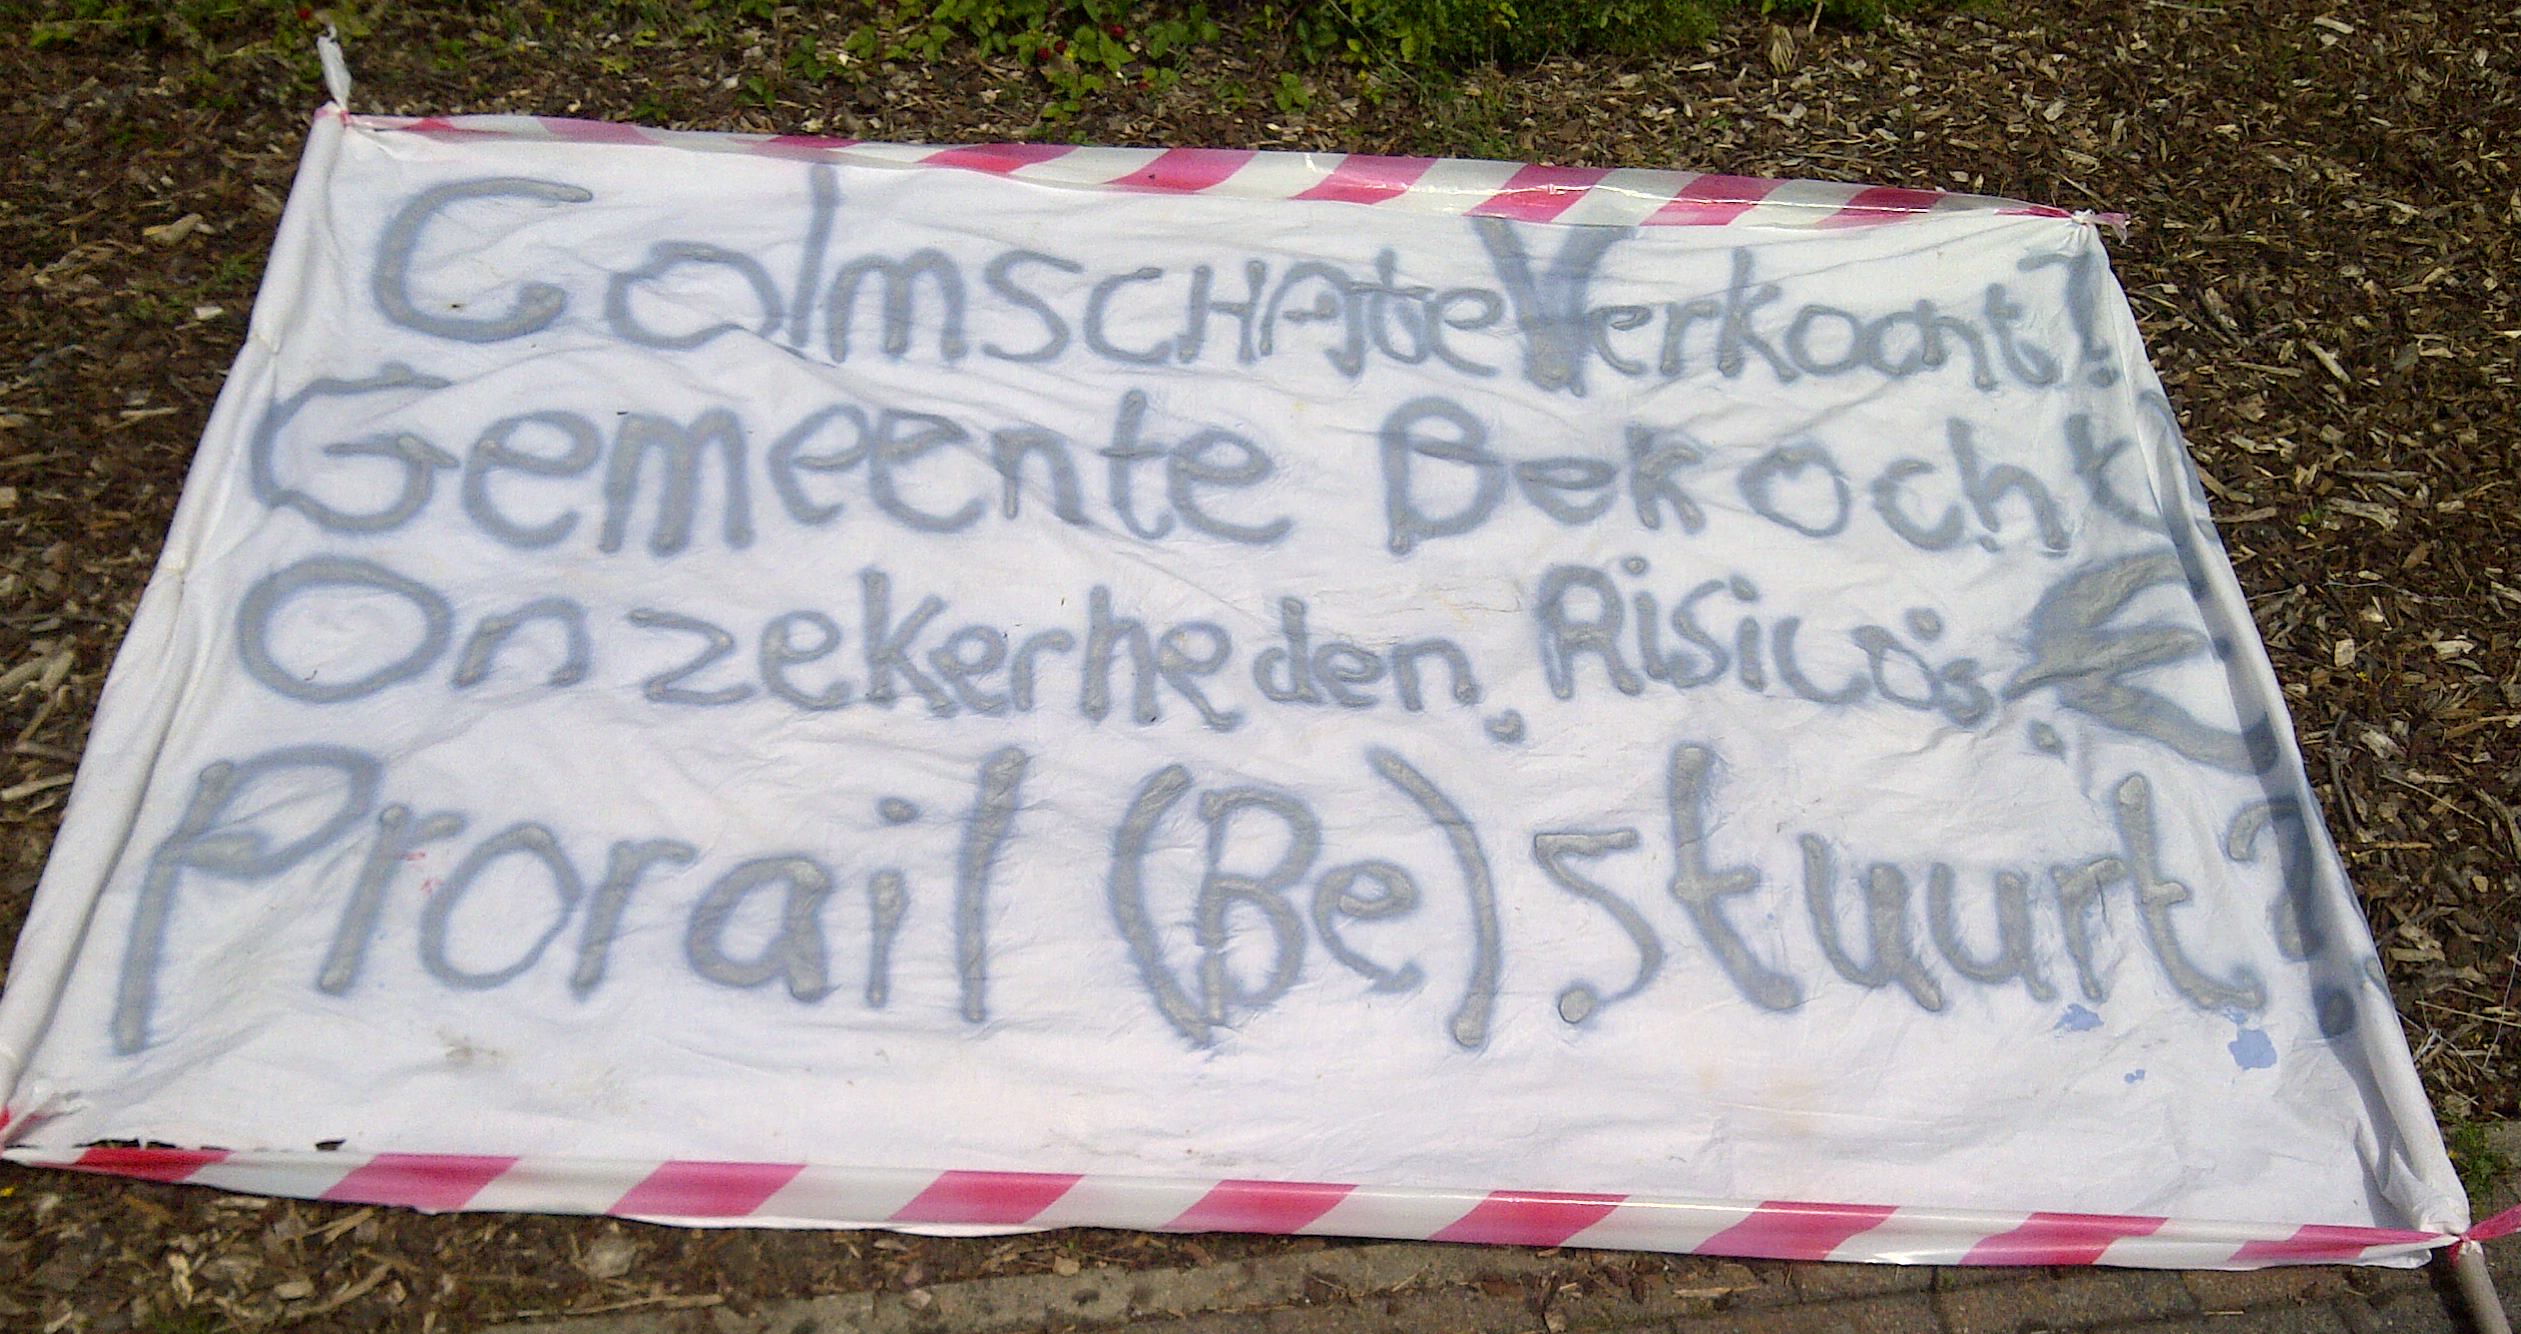 Colmschate Verkocht?
Gemeente Bekocht?
Onzekerheden, Risico's, €
Prorail (Be)stuurt?